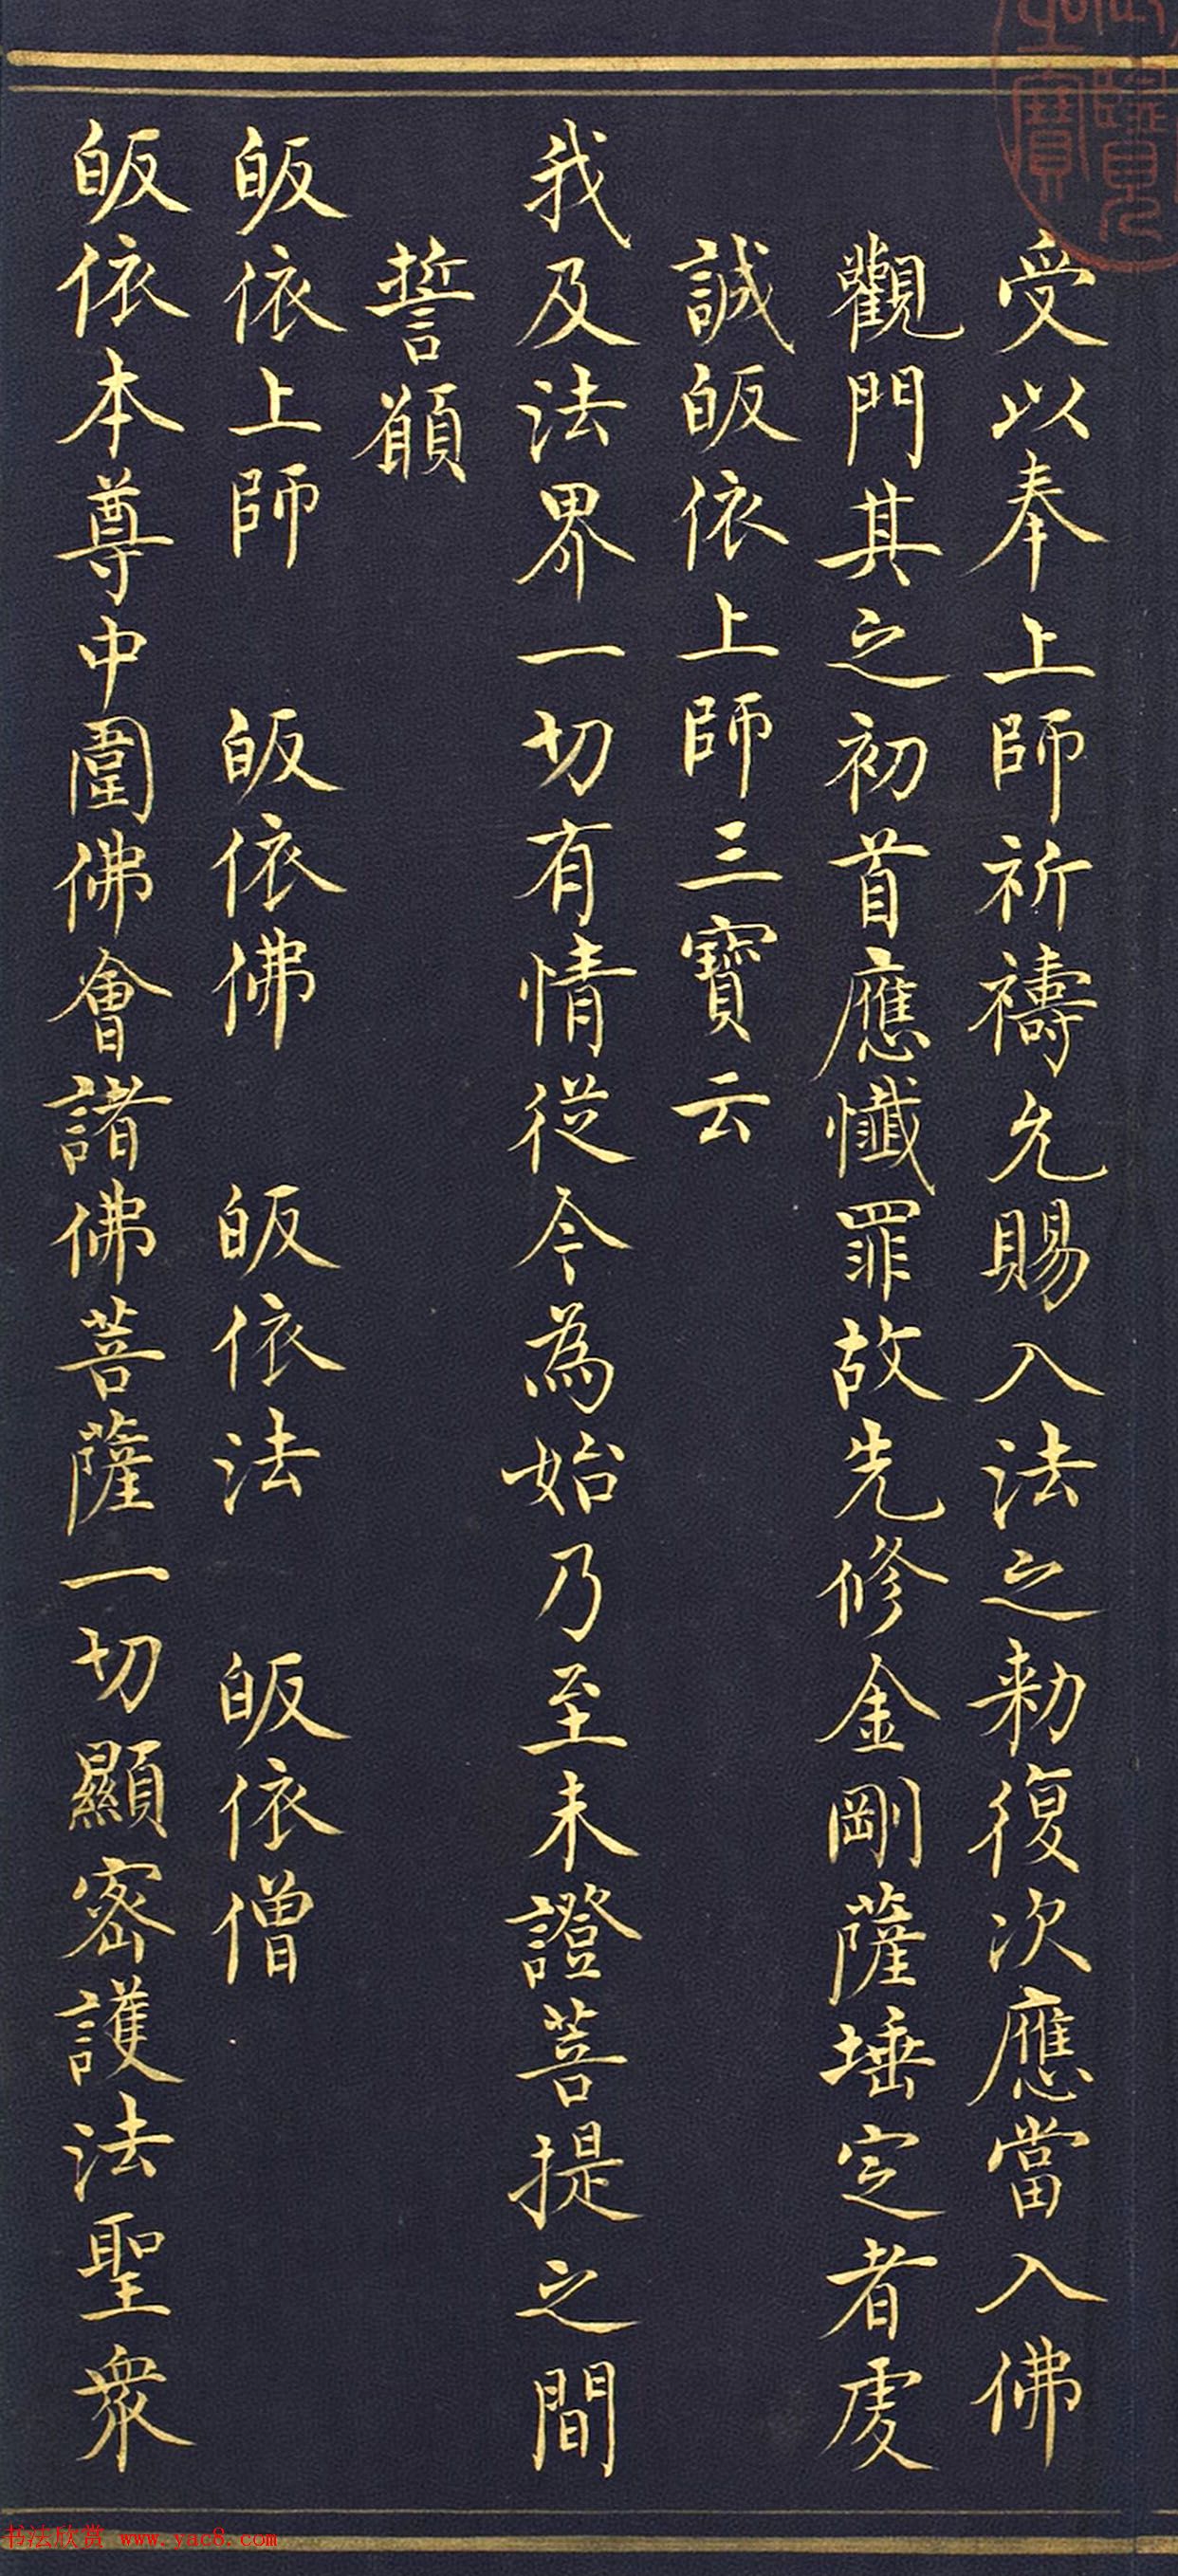 受以奉上師祈禱允賜入法之勅復次應當入佛
觀門其之初首應懺罪故先修金剛薩埵定者處
誠皈依上師三寶云
我及法界一切有情從今為始乃至未證菩提之間
誓願
皈依上師 皈依佛 皈依法 皈依僧
皈依本尊中圍佛會諸佛菩薩一切顯密護法聖衆
书法欣赏 www.yac8.com